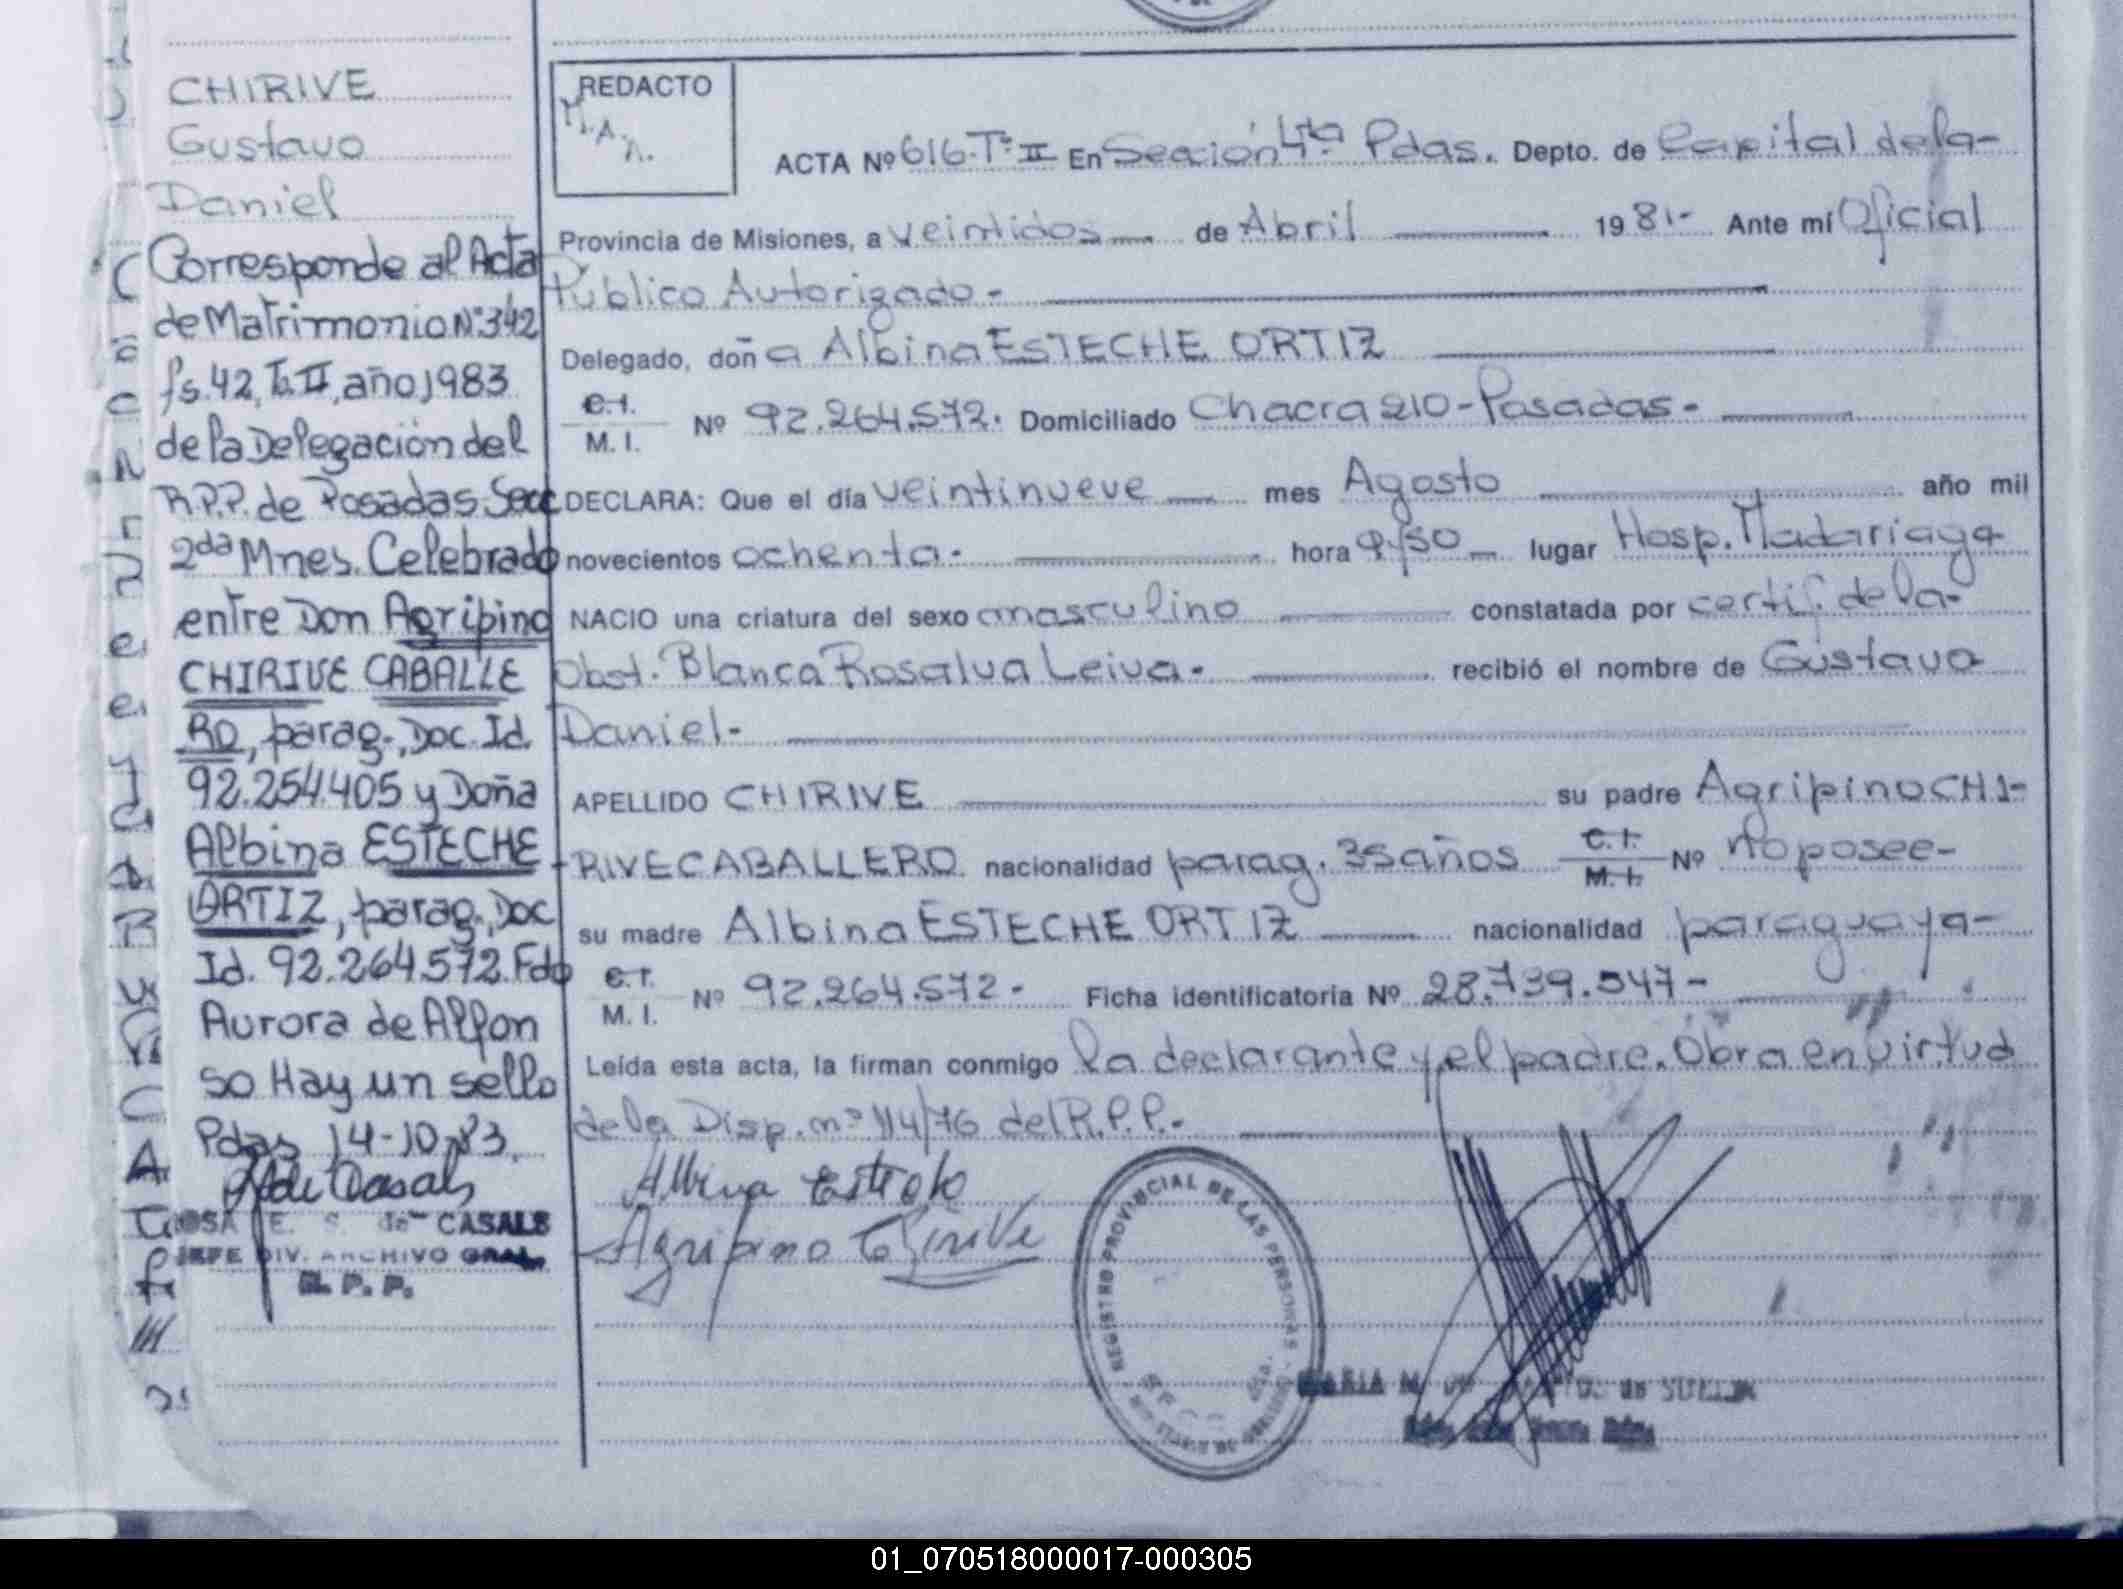 CHIRIVE
Gustavo
Daniel
Corresponde al Acta
de Matrimonio N° 342
fs. 42, To. II, año 1983
de la Delegación del
R.P.P. de Posadas Secc
2da Mnes. Celebrado
entre Don Agripino
CHIRIVE CABALLE
RO, parag., Doc. Id.
92.254.405 y Doña
Albina ESTECHE
ORTIZ, parag., Doc
Id. 92.264.572. Fdo
Aurora de Alfon
so Hay un sello
Pdas 14-10-83.
ROSA E. S. de CASALS
JEFE DIV. ARCHIVO GRAL.
R. P. P.
REDACTO
M.A.A.
ACTA Nº 616-Tº II En Sección 4ta Pdas. Depto. de Capital de la-
Provincia de Misiones, a veintidos de Abril 19 81- Ante mí Oficial
Público Autorizado-
Delegado, doña Albina ESTECHE ORTIZ
C.I.
M. I. Nº 92.264.572. Domiciliado Chacra 210-Posadas-
DECLARA: Que el día veintinueve mes Agosto año mil
novecientos ochenta- hora 9,50 lugar Hosp. Madariaga
NACIO una criatura del sexo masculino constatada por certif. de la-
Obst. Blanca Rosalva Leiva- recibió el nombre de Gustavo
Daniel-
APELLIDO CHIRIVE su padre Agripino CHI-
RIVE CABALLERO nacionalidad parag. 35 años C.I. M.I. Nº No posee-
su madre Albina ESTECHE ORTIZ nacionalidad paraguaya-
C.I.
M. I. Nº 92.264.572- Ficha identificatoria Nº 28.739.547-
Leída esta acta, la firman conmigo la declarante y el padre. Obra en virtud
de la Disp. nº 114/76 del R.P.P.-
Albina Esteche
Agripino Chirive
REGISTRO PROVINCIAL DE LAS PERSONAS
MARIA M. DE
01_070518000017-000305